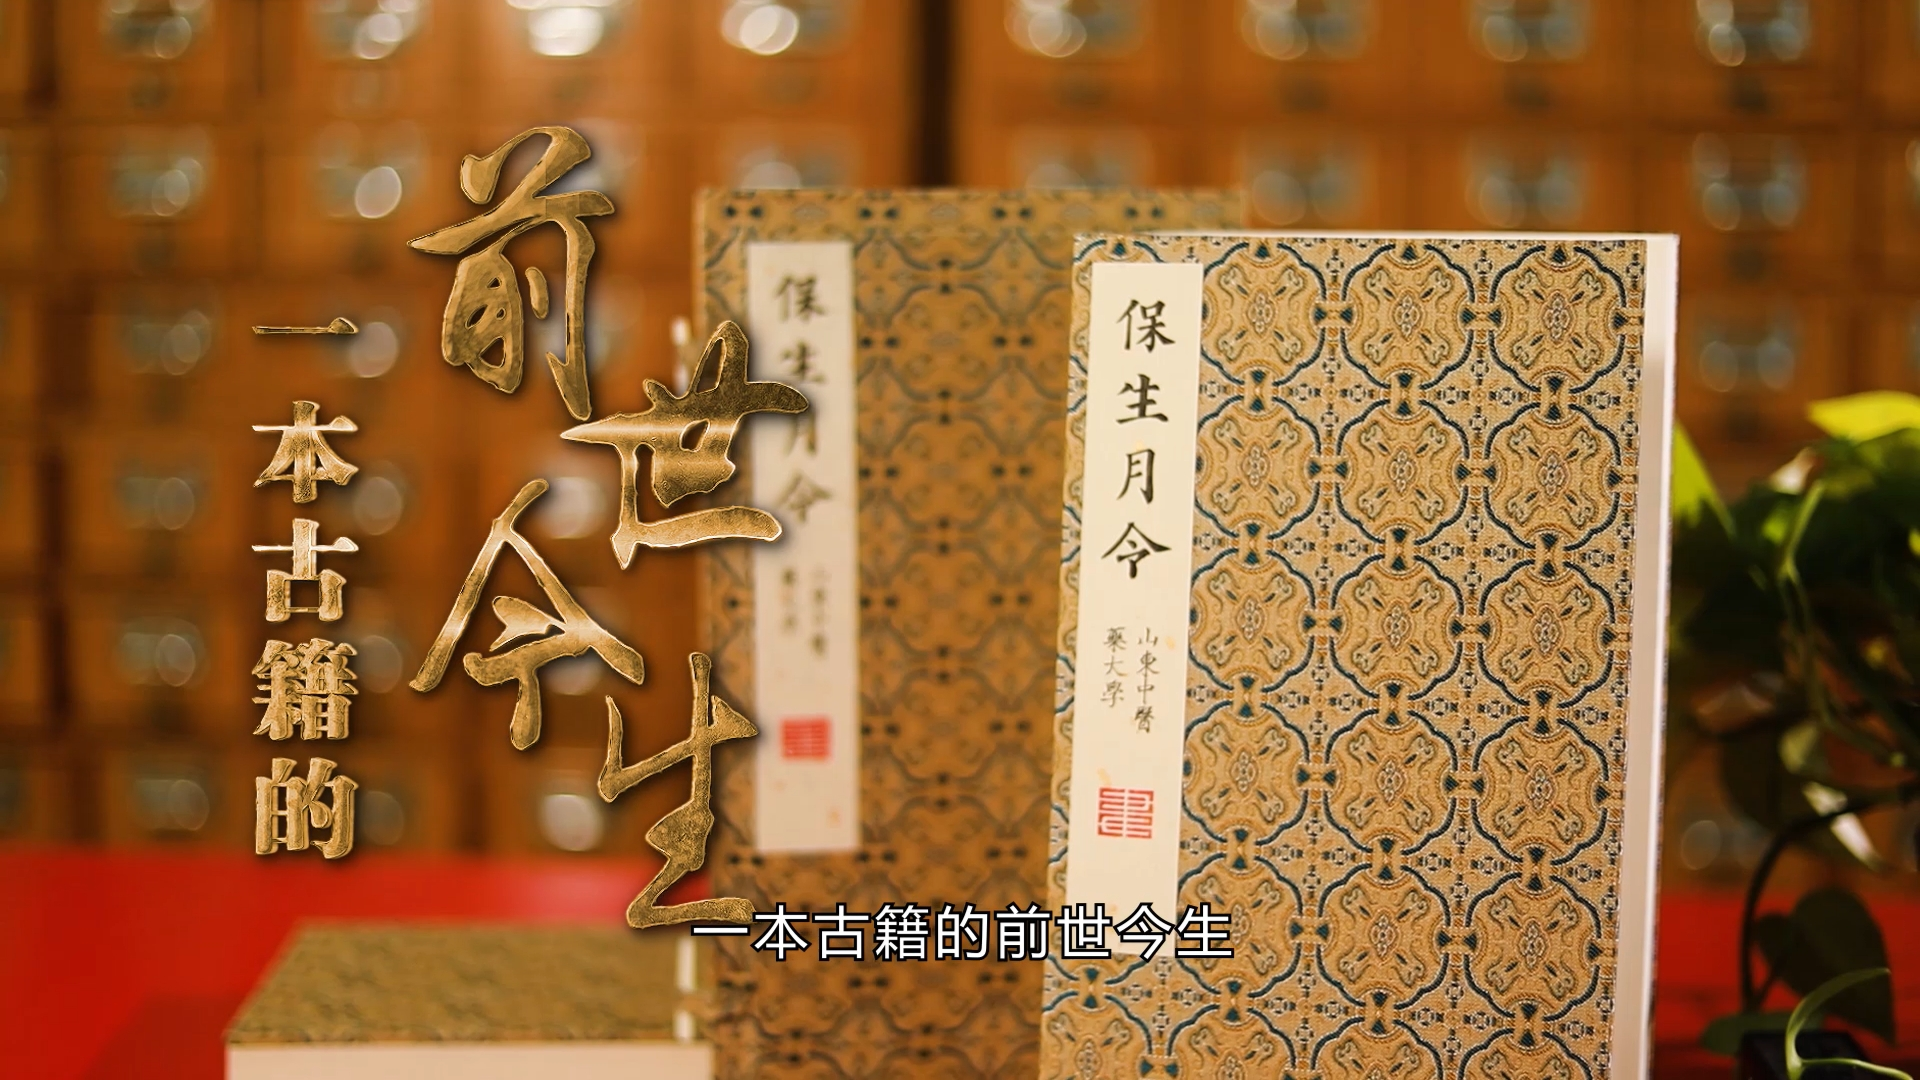 一本古籍的
前世今生
保生月令
保生月令
山東中醫
藥大學
一本古籍的前世今生